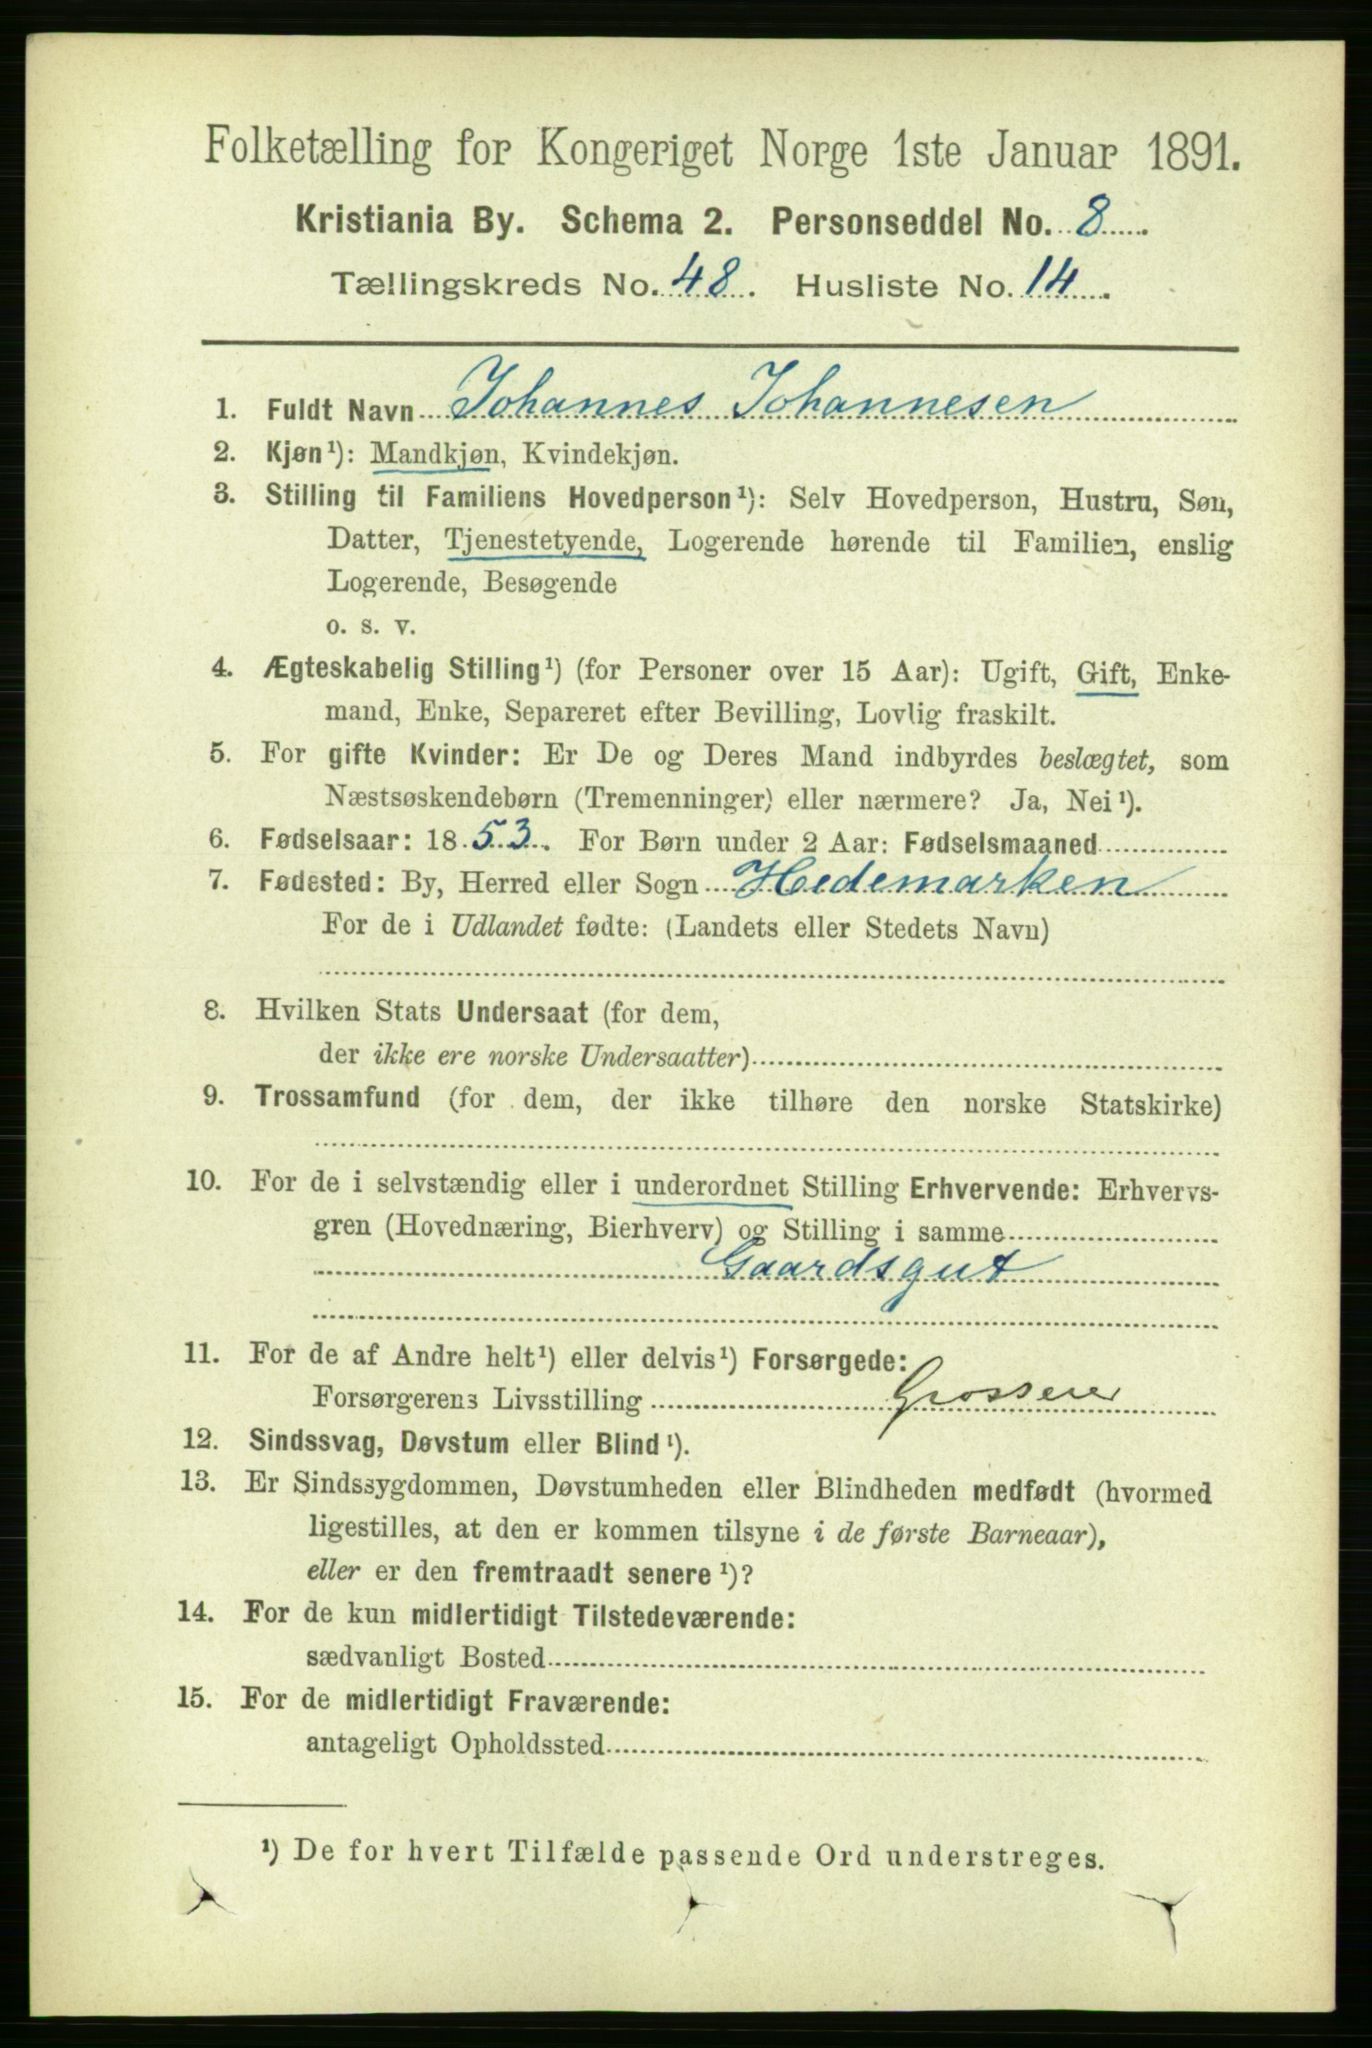 Folketælling for Kongeriget Norge 1ste Januar 1891.
Kristiania By. Schema 2. Personseddel No. 8.
Tællingskreds No. 48. Husliste No. 14.
1. Fuldt Navn Johannes Johannesen
2. Kjøn¹): Mandkjøn, Kvindekjøn.
3. Stilling til Familiens Hovedperson¹): Selv Hovedperson, Hustru, Søn,
Datter, Tjenestetyende, Logerende hørende til Familien, enslig
Logerende, Besøgende
o. s. v.
4. Ægteskabelig Stilling¹) (for Personer over 15 Aar): Ugift, Gift, Enke-
mand, Enke, Separeret efter Bevilling, Lovlig fraskilt.
5. For gifte Kvinder: Er De og Deres Mand indbyrdes beslægtet, som
Næstsøskendebørn (Tremenninger) eller nærmere? Ja, Nei¹).
6. Fødselsaar: 1853. For Børn under 2 Aar: Fødselsmaaned
7. Fødested: By, Herred eller Sogn Hedemarken
For de i Udlandet fødte: (Landets eller Stedets Navn)
8. Hvilken Stats Undersaat (for dem,
der ikke ere norske Undersaatter)
9. Trossamfund (for dem, der ikke tilhøre den norske Statskirke)
10. For de i selvstændig eller i underordnet Stilling Erhvervende: Erhvervs-
gren (Hovednæring, Bierhverv) og Stilling i samme
Gaardsgut
11. For de af Andre helt¹) eller delvis¹) Forsørgede:
Forsørgerens Livsstilling Grosserer
12. Sindssvag, Døvstum eller Blind¹).
13. Er Sindssygdommen, Døvstumheden eller Blindheden medfødt (hvormed
ligestilles, at den er kommen tilsyne i de første Barneaar),
eller er den fremtraadt senere¹)?
14. For de kun midlertidigt Tilstedeværende:
sædvanligt Bosted
15. For de midlertidigt Fraværende:
antageligt Opholdssted
¹) De for hvert Tilfælde passende Ord understreges.